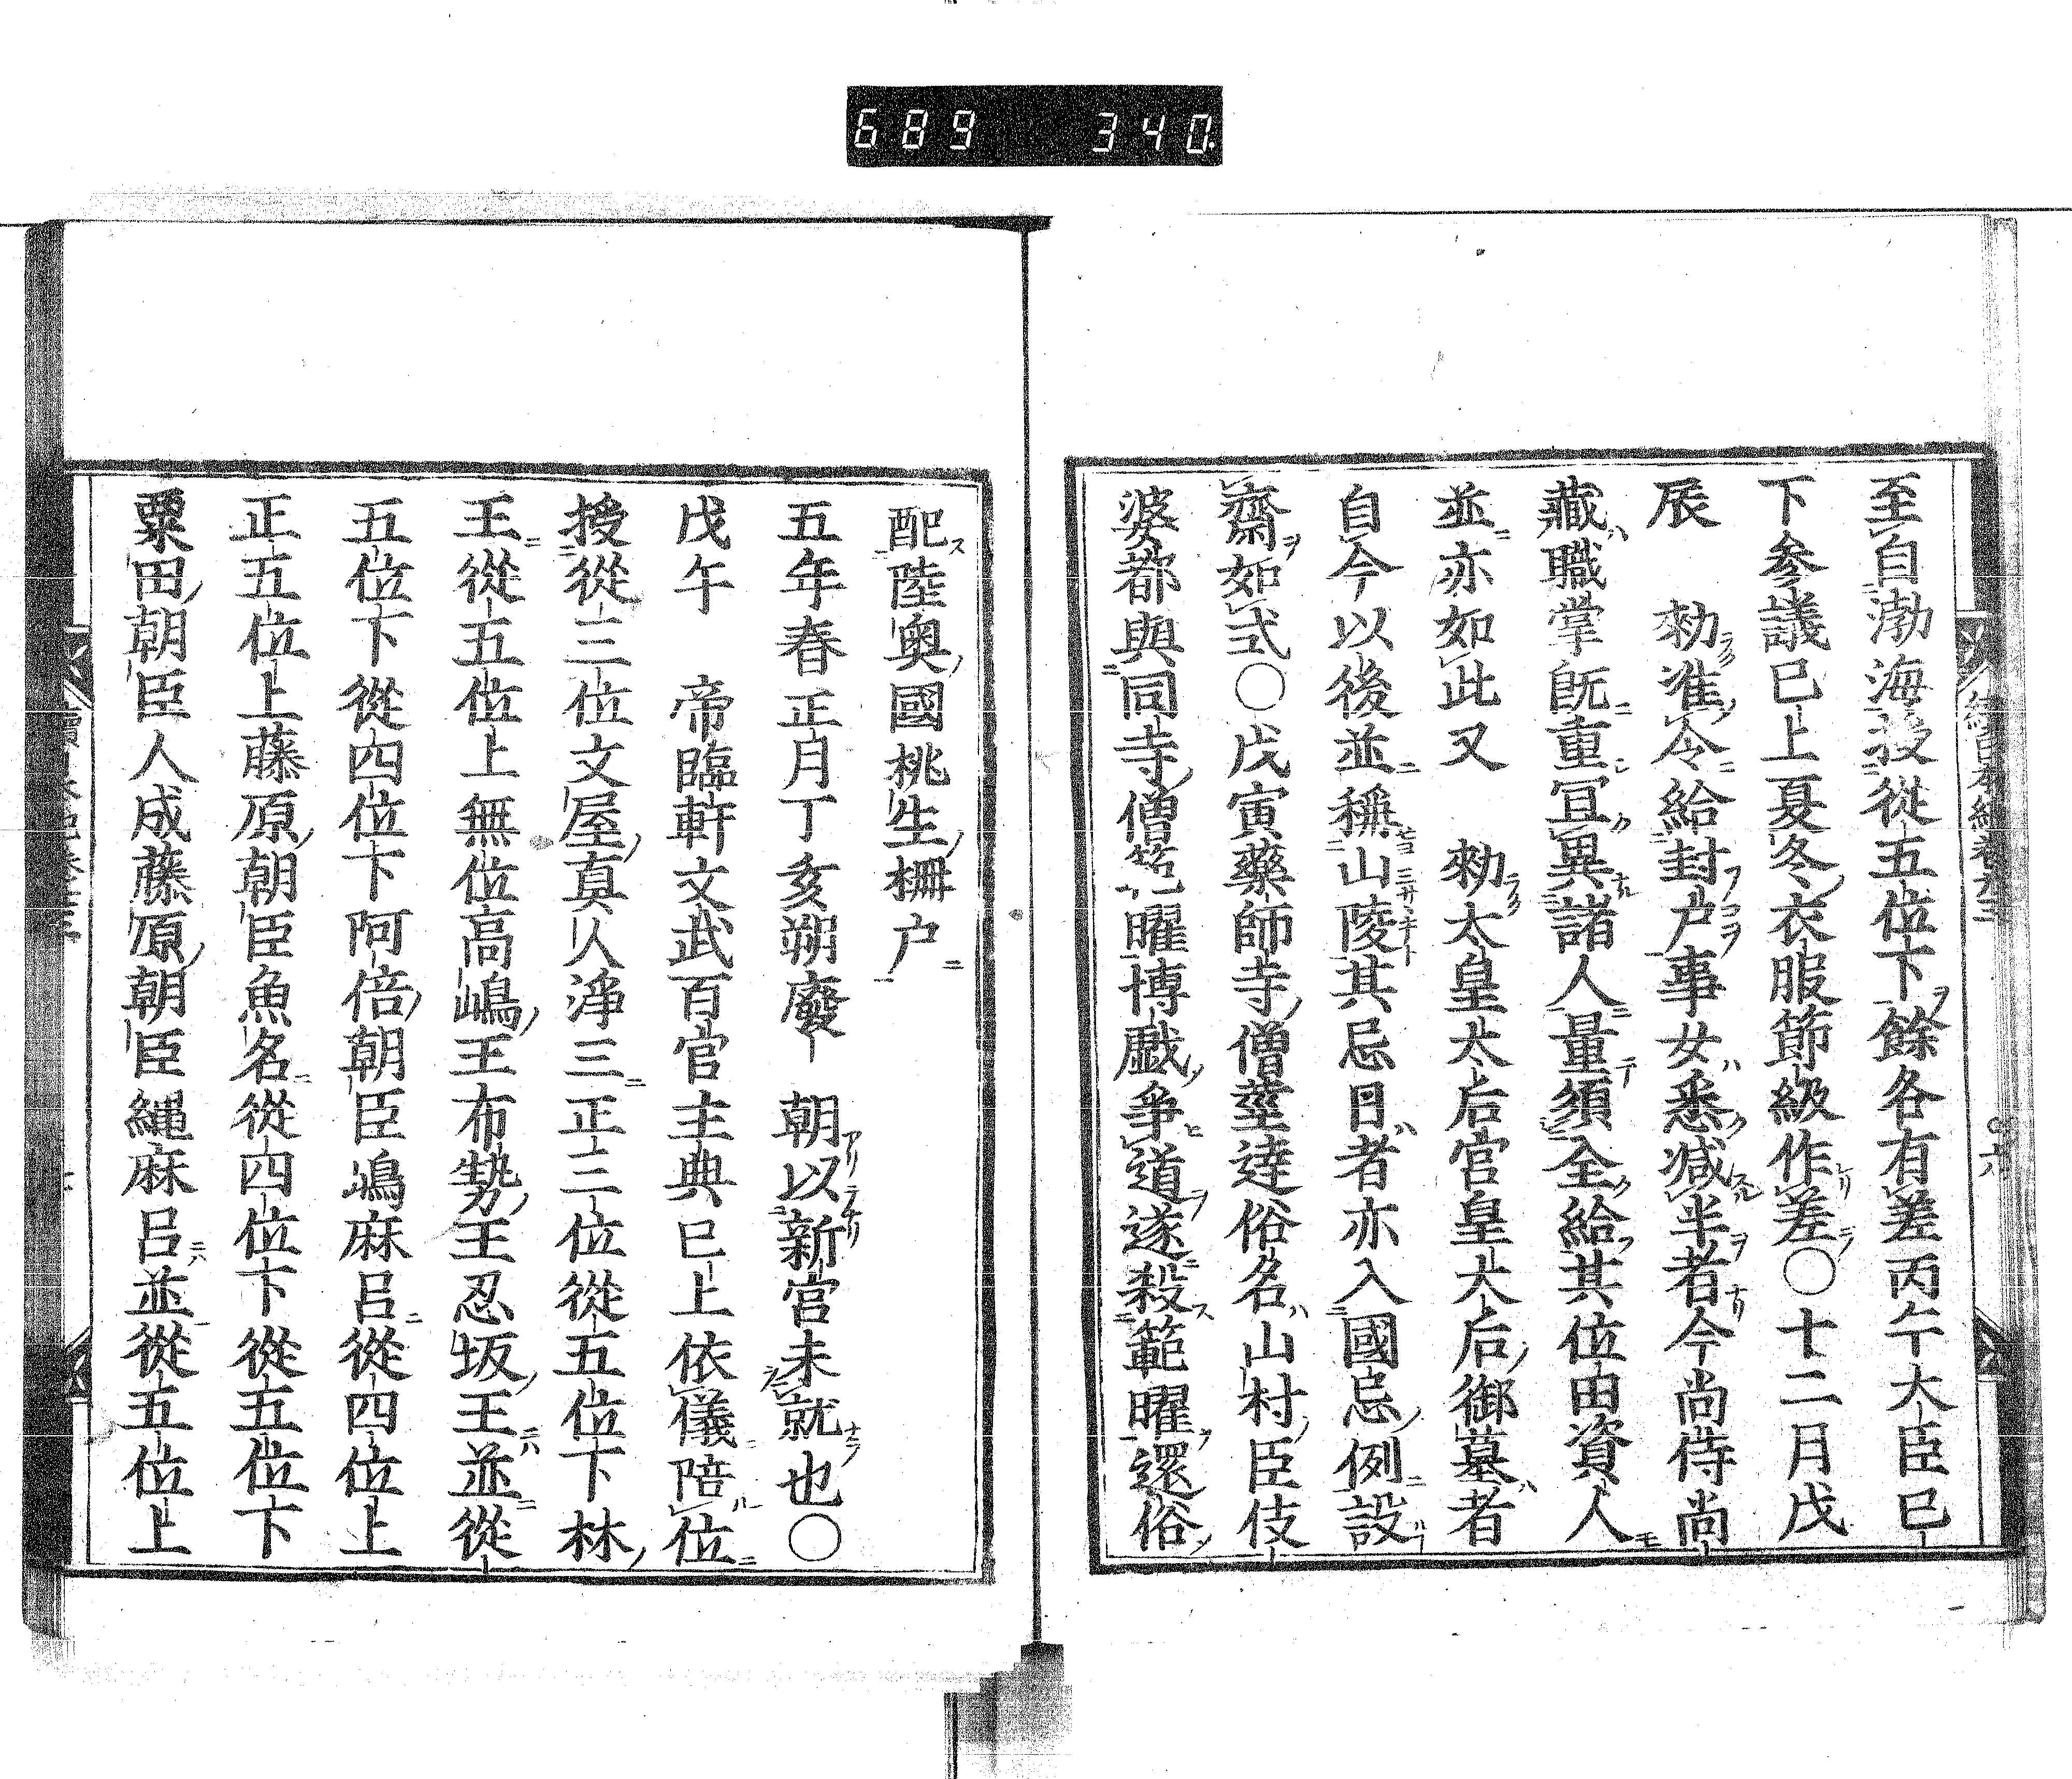 689 340
至自渤海授從五位下餘各有差丙午大臣巳
下參議巳上夏冬衣服節級作差○十二月戊
辰 勑准令給封戸事女悉減半者今尚侍尚
藏職掌既重宜異諸人量須全給其位田資人
並亦如此又 勑太皇太后宮皇太后御墓者
自今以後並稱山陵其忌日者亦入國忌例設
齋如式○戊寅藥師寺僧華達俗名山村臣伎
婆都與同寺僧範曜博戲爭道遂殺範曜還俗
配陸奧國桃生柵戸
五年春正月丁亥朔廢 朝以新宮未就也○
戊午 帝臨軒文武百官主典巳上依儀陪位
授從三位文屋真人淨三正三位從五位下林
王從五位上無位高嶋王布勢王忍坂王並從
五位下從四位下阿倍朝臣嶋麻呂從四位上
正五位上藤原朝臣魚名從四位下從五位下
粟田朝臣人成藤原朝臣繩麻呂並從五位上